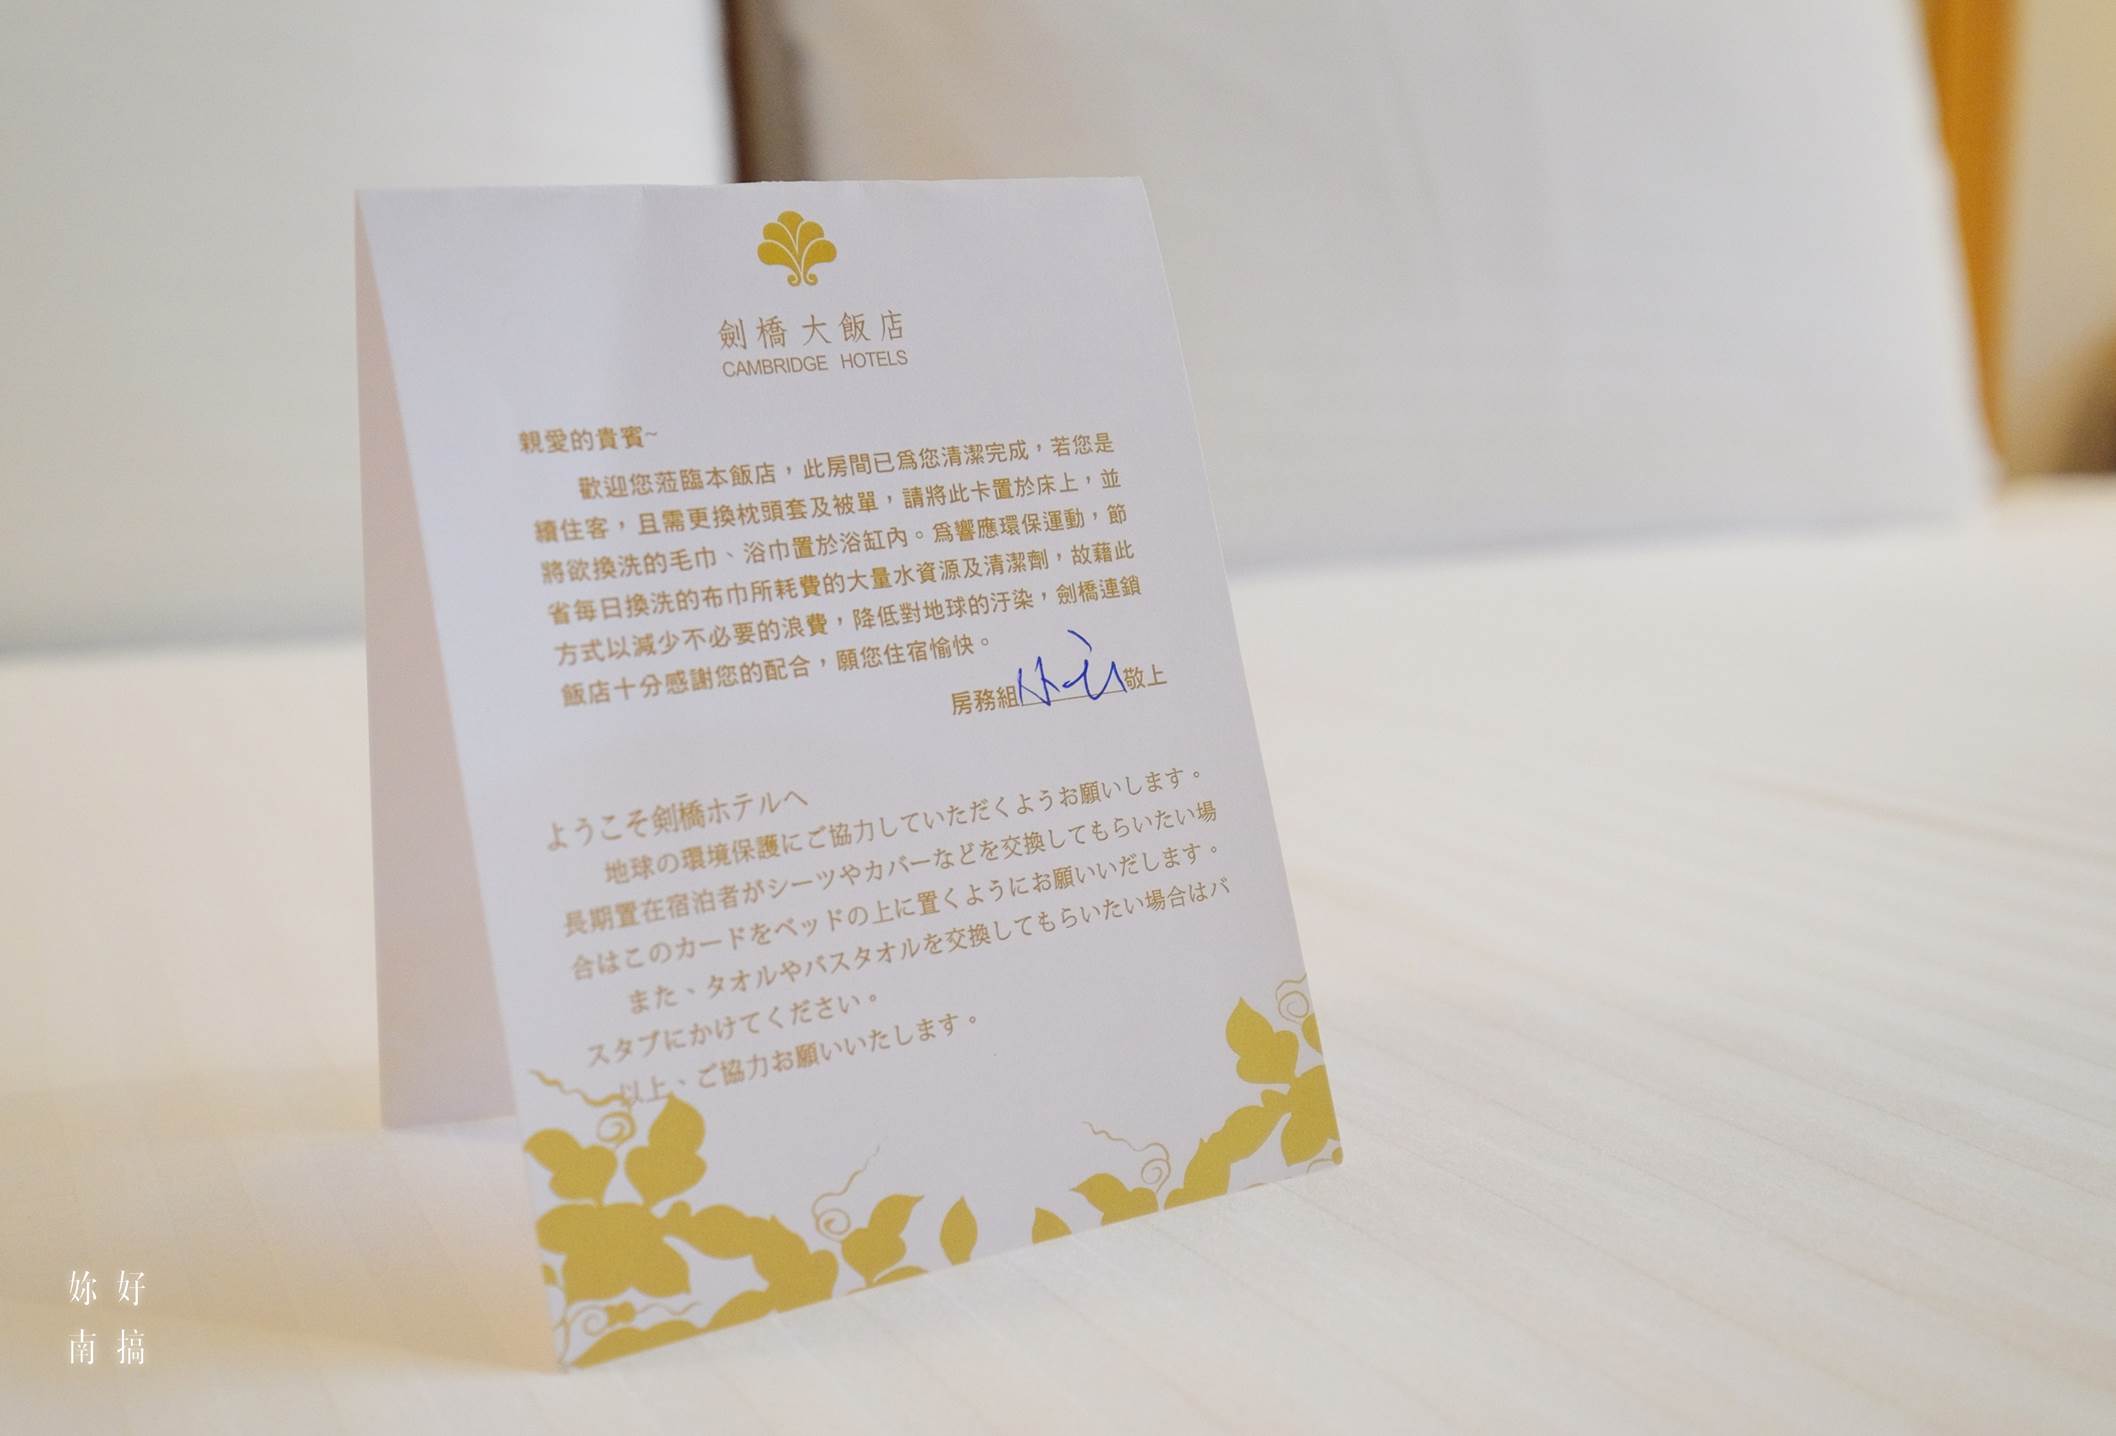 劍橋大飯店
CAMBRIDGE HOTELS
親愛的貴賓~
歡迎您蒞臨本飯店，此房間已爲您清潔完成，若您是
續住客，且需更換枕頭套及被單，請將此卡置於床上，並
將欲換洗的毛巾、浴巾置於浴缸內。爲響應環保運動，節
省每日換洗的布巾所耗費的大量水資源及清潔劑，故藉此
方式以減少不必要的浪費，降低對地球的汙染，劍橋連鎖
飯店十分感謝您的配合，願您住宿愉快。
房務組 敬上
ようこそ剣橋ホテルへ
地球の環境保護にご協力していただくようお願いします。
長期置在宿泊者がシーツやカバーなどを交換してもらいたい場
合はこのカードをベッドの上に置くようにお願いいだします。
また、タオルやバスタオルを交換してもらいたい場合はバ
スタブにかけてください。
以上、ご協力お願いいたします。
妳好
南搞